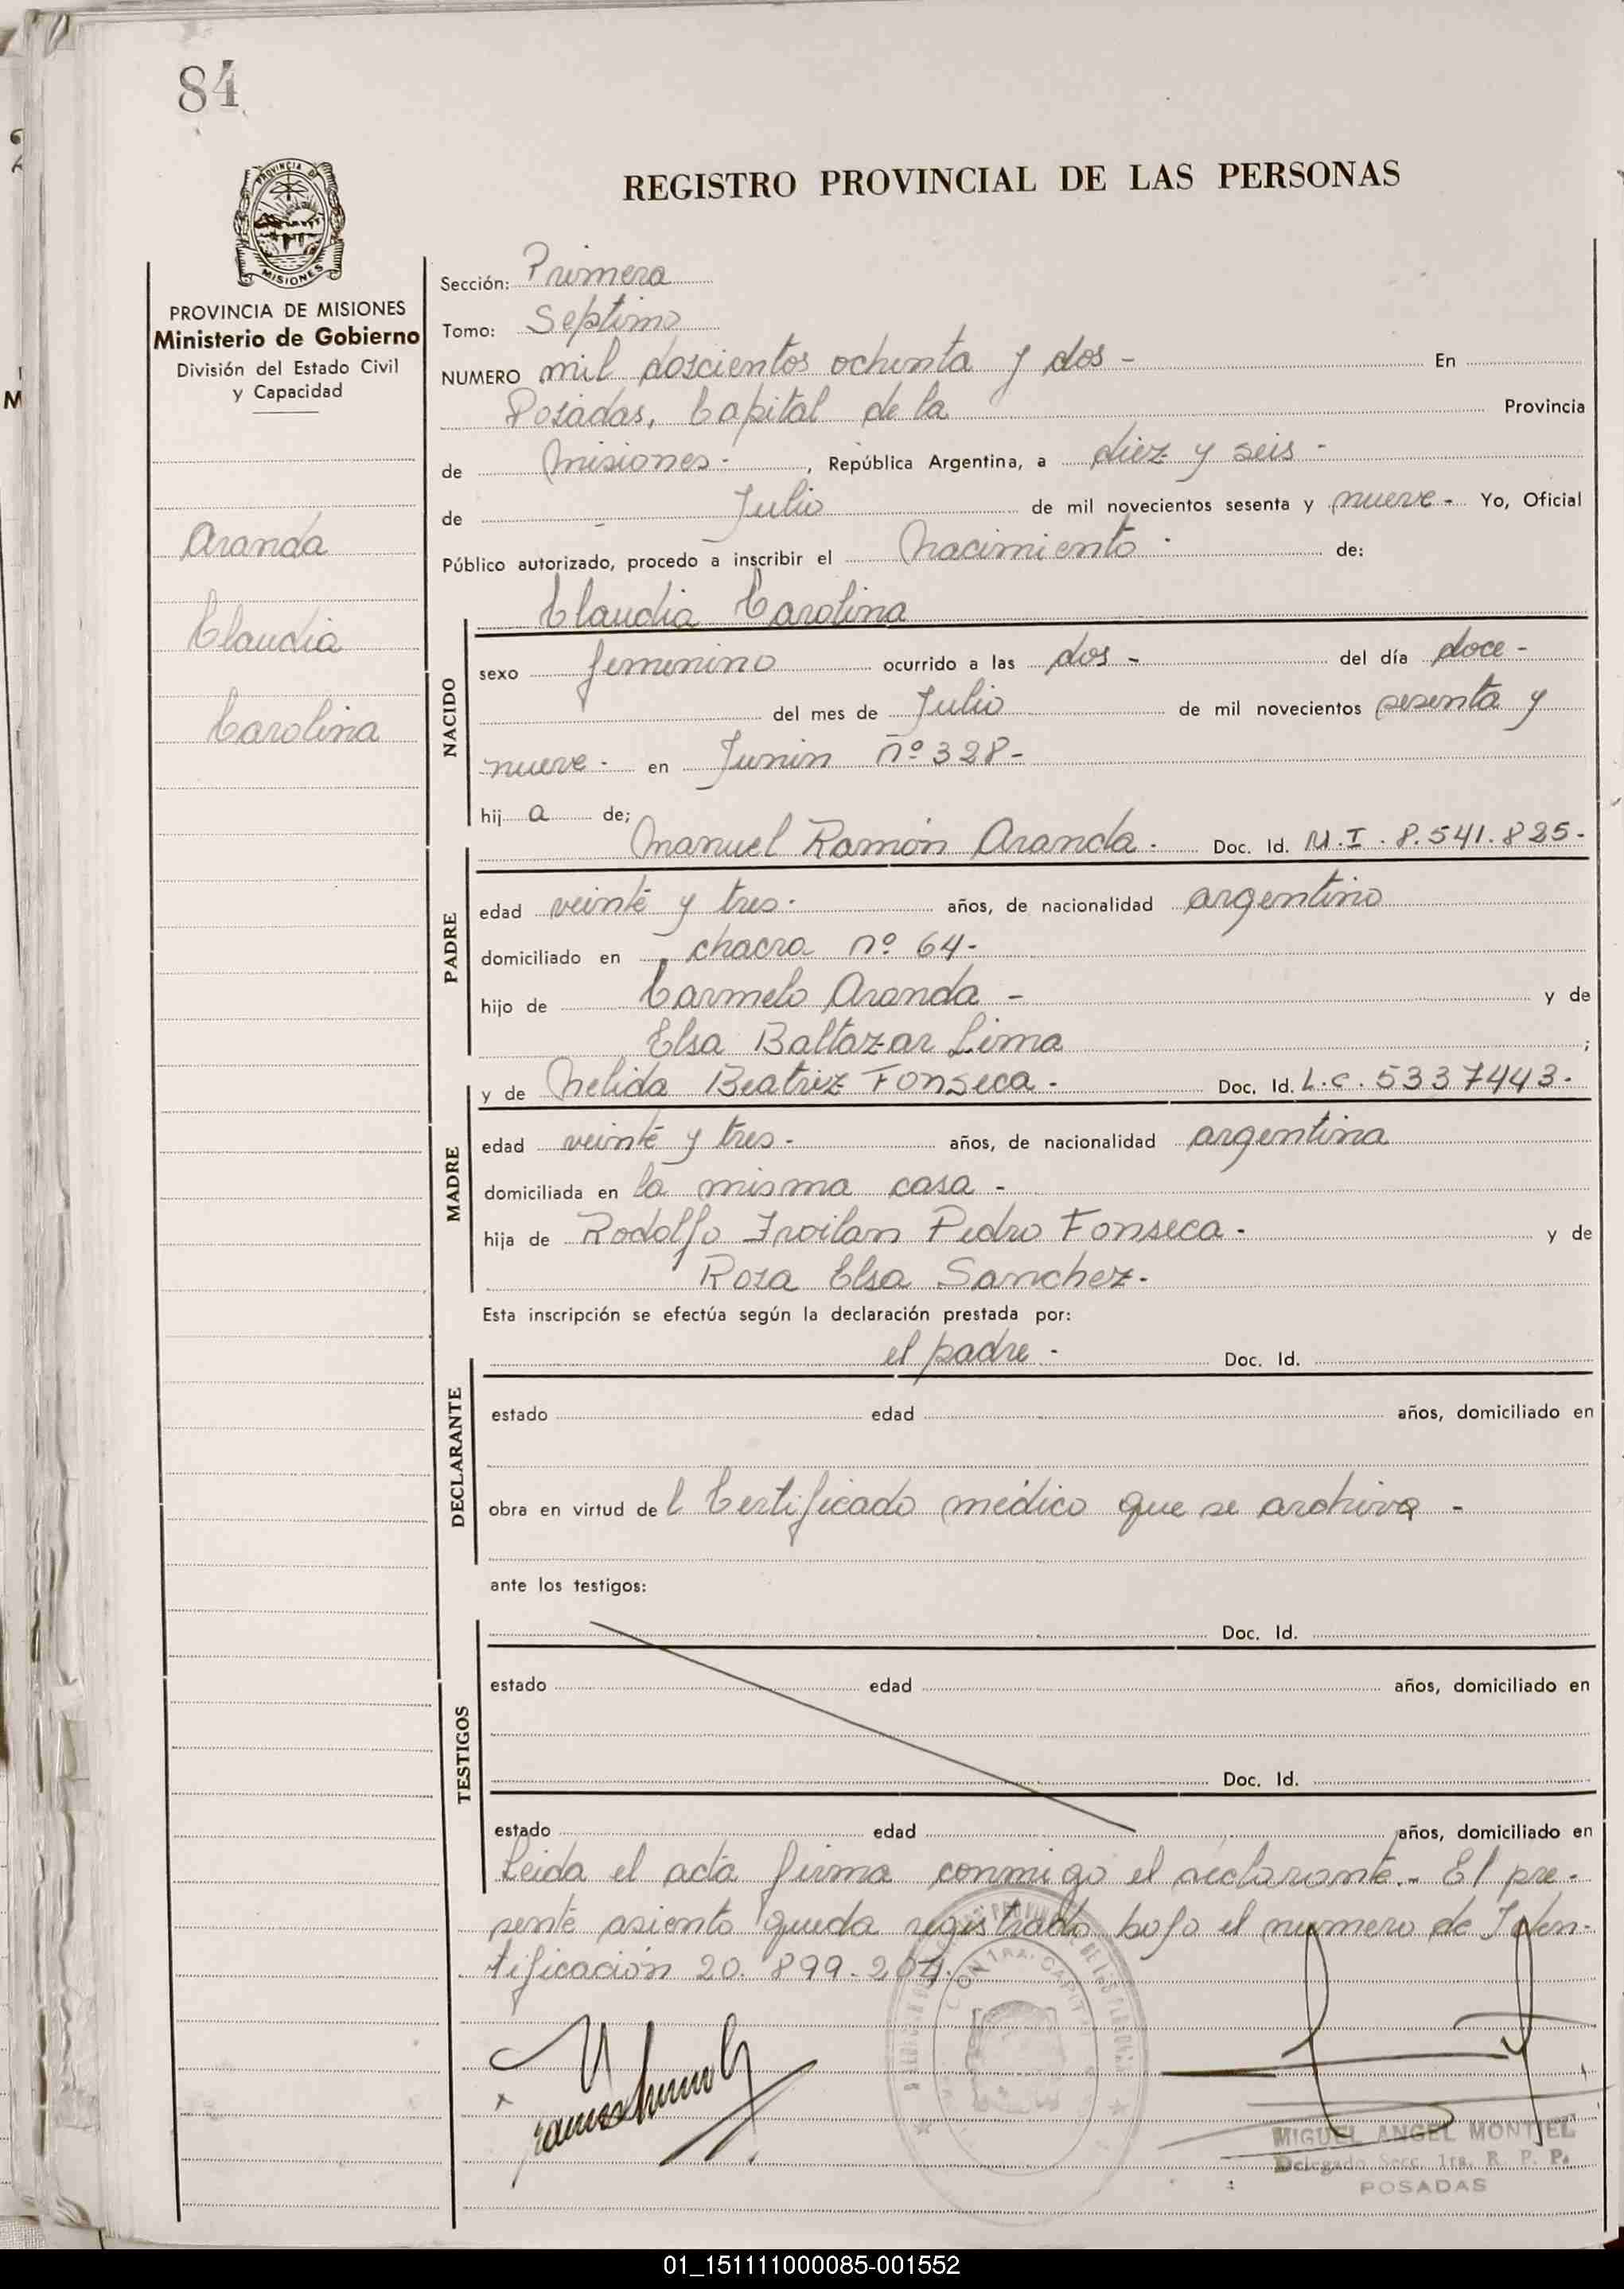 84
PROVINCIA DE
MISIONES
REGISTRO PROVINCIAL DE LAS PERSONAS
PROVINCIA DE MISIONES
Ministerio de Gobierno
División del Estado Civil
y Capacidad
Aranda
Claudia
Carolina
Sección: Primera
Tomo: Septimo
NUMERO mil doscientos ochenta y dos - En
Posadas, Capital de la Provincia
de Misiones - , República Argentina, a diez y seis -
de Julio de mil novecientos sesenta y nueve - Yo, Oficial
Público autorizado, procedo a inscribir el Nacimiento - de:
Claudia Carolina
NACIDO
sexo femenino ocurrido a las dos - del día doce -
del mes de Julio de mil novecientos sesenta y
nueve - en Junin nº 328-
hij a de;
Manuel Ramón Aranda - Doc. Id. M.I. 8.541.825-
PADRE
edad veinte y tres - años, de nacionalidad argentino
domiciliado en chacra nº 64-
hijo de Carmelo Aranda - y de
Elsa Baltazar Lima ;
y de Nelida Beatriz Fonseca - Doc. Id. L.C. 5337443-
MADRE
edad veinte y tres - años, de nacionalidad argentina
domiciliada en la misma casa -
hija de Rodolfo Froilan Pedro Fonseca - y de
Rosa Elsa Sanchez-
Esta inscripción se efectúa según la declaración prestada por:
el padre - Doc. Id.
DECLARANTE
estado edad años, domiciliado en
obra en virtud de l Certificado médico que se archiva -
ante los testigos:
Doc. Id.
TESTIGOS
estado edad años, domiciliado en
Doc. Id.
estado edad años, domiciliado en
Leida el acta firma conmigo el declarante.- El pre-
sente asiento queda registrado bajo el numero de Iden-
tificación 20.899.204.
MIGUEL ANGEL MONTIEL
Delegado Secc. 1ra. R. P. P.
POSADAS
01_151111000085-001552